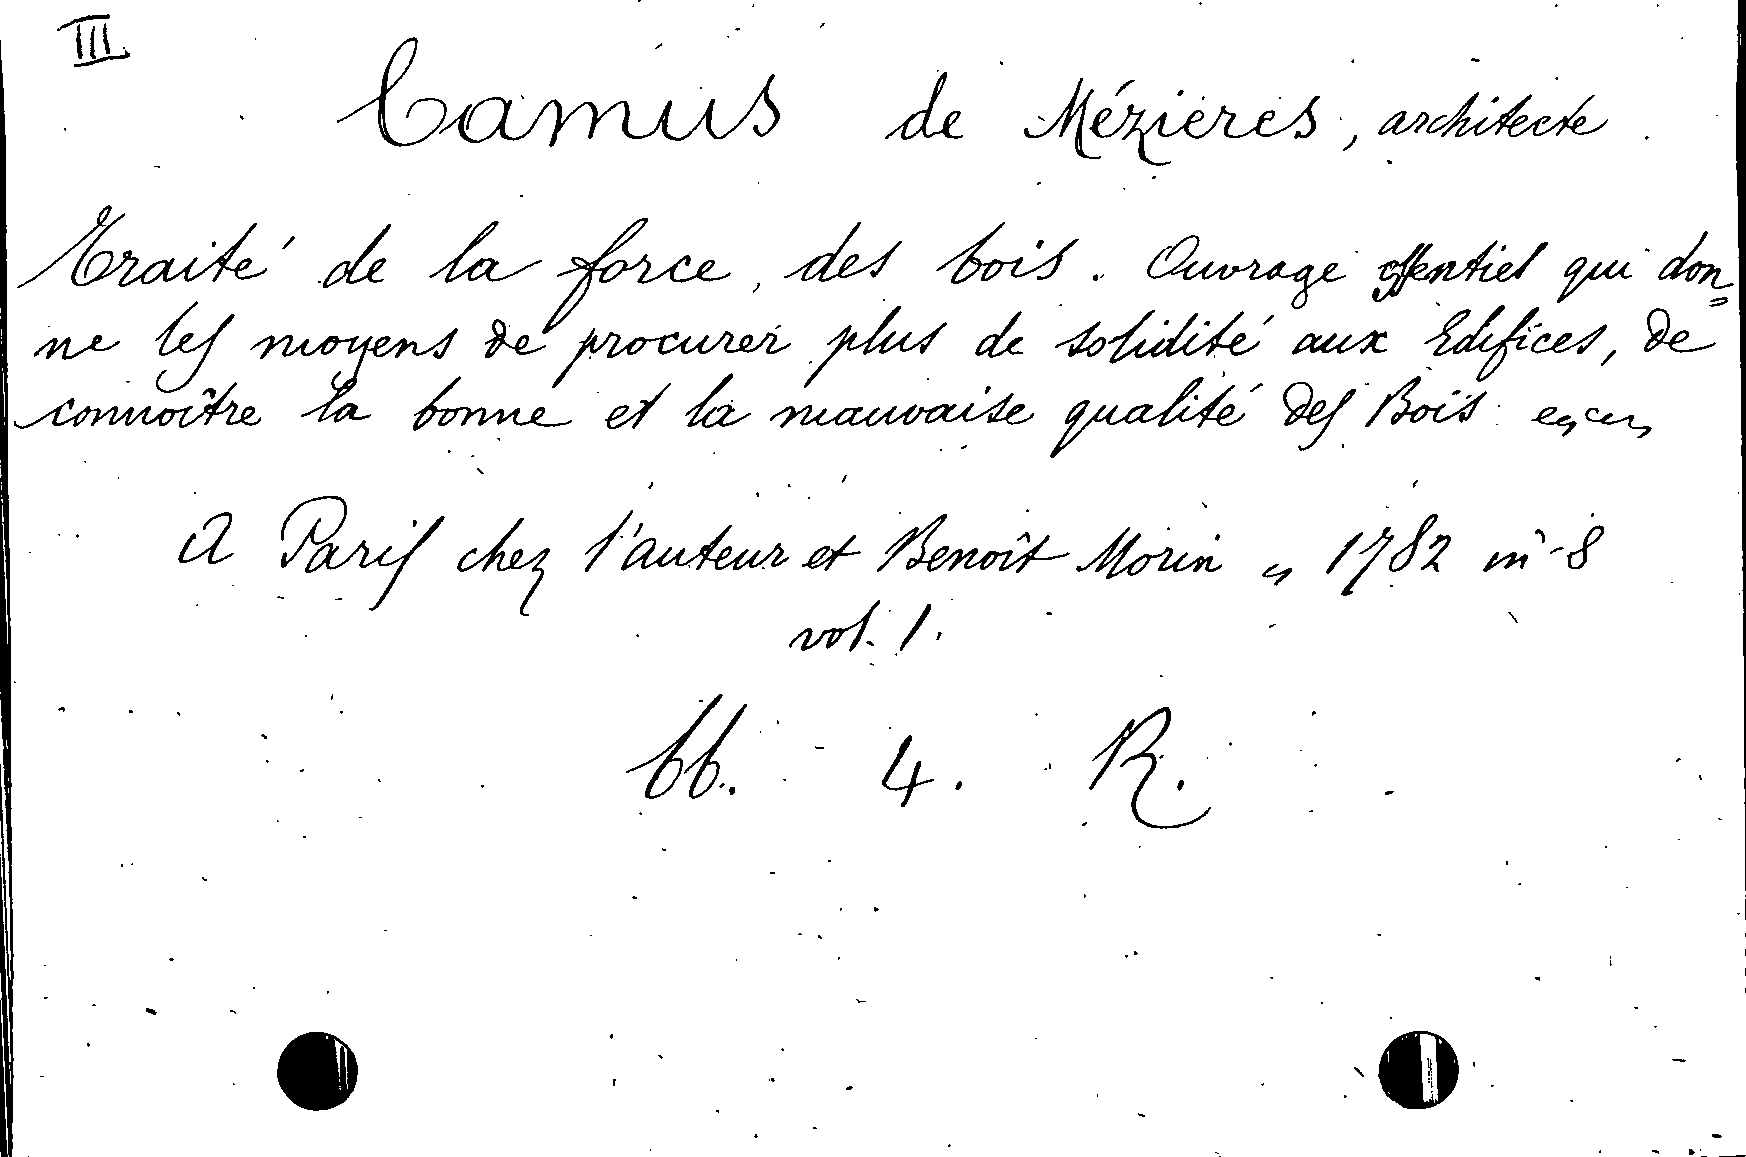 III
Camus de Mézières, architecte
Traité de la force des bois. Ouvrage essentiel qui don=
ne les moyens de procurer plus de solidité aux Edifices, de
connoître la bonne et la mauvaise qualité des Bois
A Paris chez l'auteur et Benoît Morin „ 1782 in-8
vol. 1.
bb. 4. R.